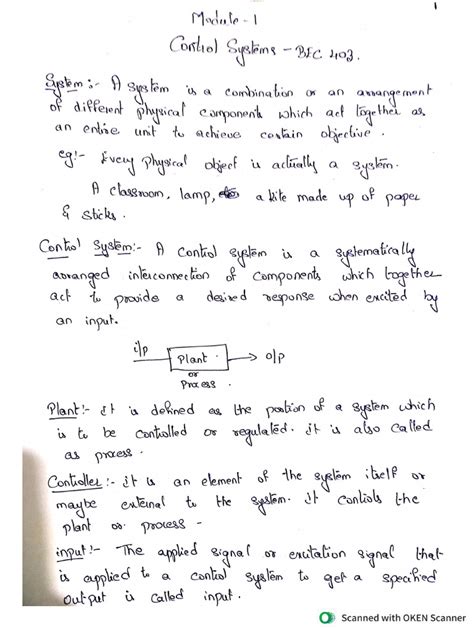 1
Module - 1
Control Systems - BEC 403.
System :- A system is a combination or an arrangement
of different physical components which act together as
an entire unit to achieve certain objective.
eg:- Every physical object is actually a system.
A classroom, lamp, a kite made up of paper
& sticks.
Control System:- A control system is a systematically
arranged interconnection of components which together
act to provide a desired response when excited by
an input.
i/p Plant o/p
or
Process.
Plant:- it is defined as the portion of a system which
is to be controlled or regulated. it is also called
as process.
Controller :- it is an element of the system itself or
maybe external to the system. it controls the
plant or process -
input!- The applied signal or excitation signal that
is applied to a control system to get a specified
output is called input.
Scanned with OKEN Scanner